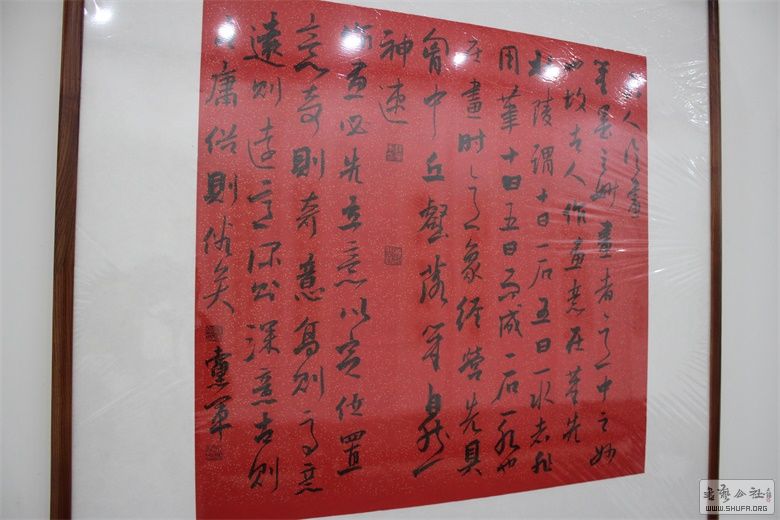 筆墨之妙畫者意中之妙
也故古人作畫意在筆先
杜陵謂十日一石五日一水者非
用筆十日五日而成一石一水也
在畫時意象經營先具
胸中丘壑落筆自然
神速
作畫必先立意以定位置
意奇則奇意高則高意
遠則遠意深則深意古則
古庸俗則俗矣
黨軍
书艺公社
WWW.SHUFA.ORG